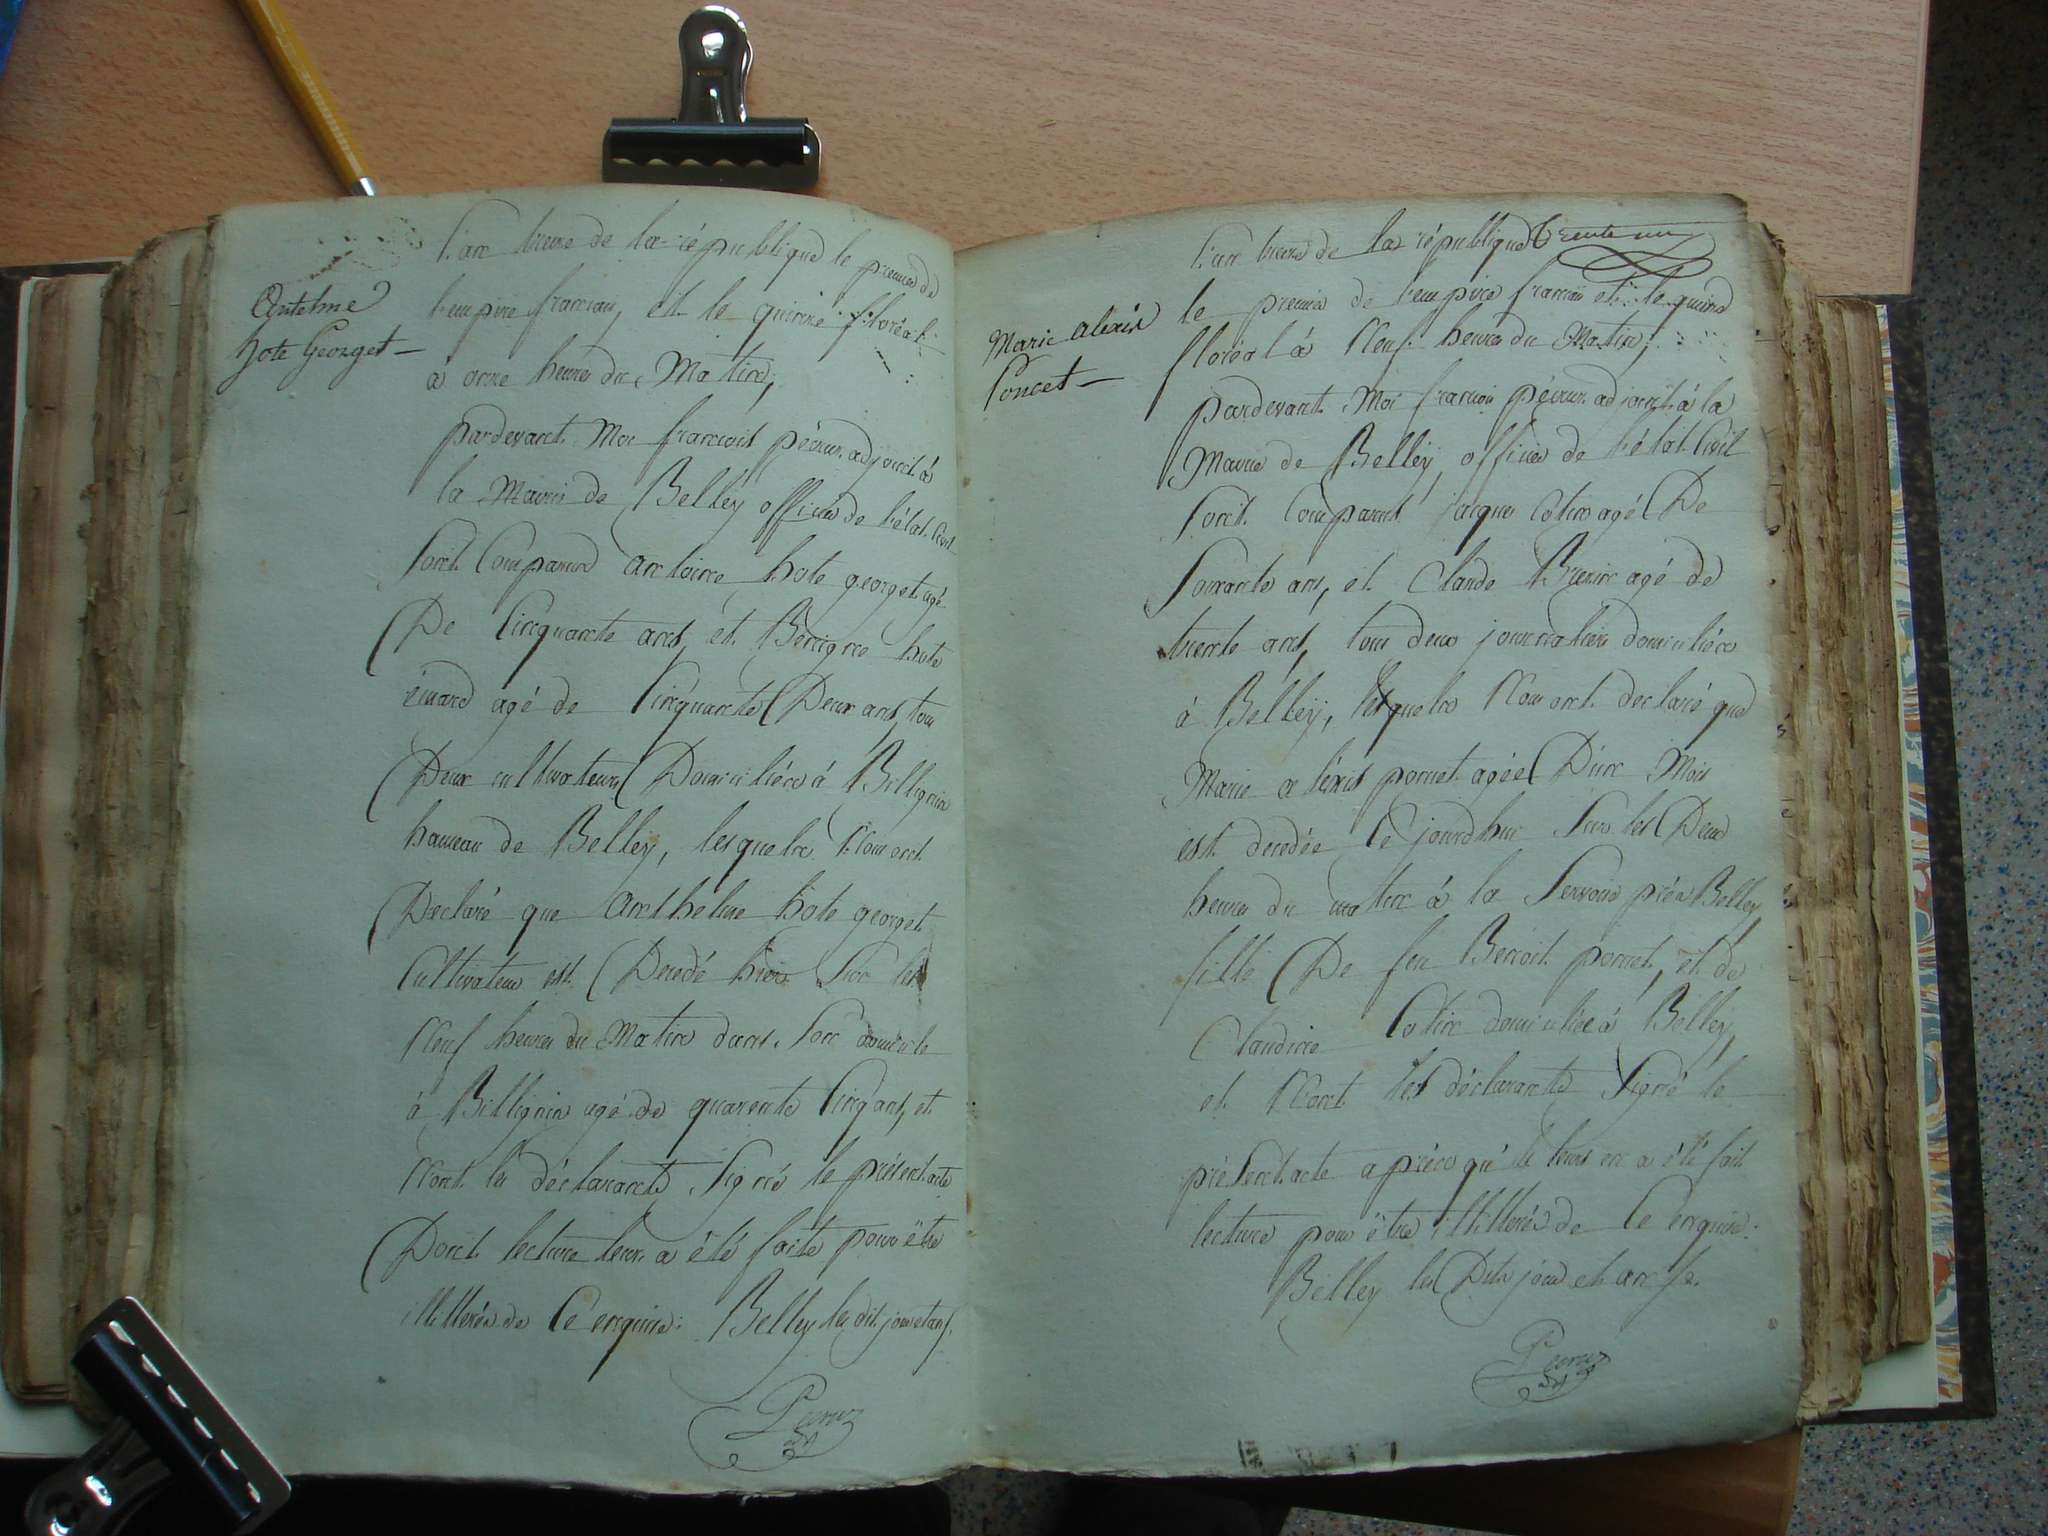 l'an treize de la république le premier de
Antelme
hote Georget —
l'empire francais, et le quinze floréal
à onze heures du Matin,
pardevant Moi francois pévrux adjoint à
la Mairie de Belley officier de l'état Civil
Sont Comparus antoine hote georget agé
De Cinquante ans, et Bénigne hote
agé de Cinquante Deux ans, tous
Deux cultivateurs Domiciliés à Billignin
hameau de Belley, lesquels Nous ont
Declaré que anthelme hote georget
Cultivateur est Decedé hier Sur les
Neuf heures du Matin dans Son domicile
à Billignin agé de quarente Cinq ans, et
N'ont les déclarants Signé le présent acte
Dont lecture leur a été faite pour être
illitterés de Ce enquis. Belley les dit jour et an f.
l'an treize de la république trente un
Marie alexis
Poncet —
le premier de l'empire francais et le quinze
floréal à Neuf heures du Matin,
pardevant Moi francois pévrux adjoint à la
Mairie de Belley, officier de l'état Civil
Sont Comparus jacques Cotin agé De
Soixante ans, et Claude agé de
trente ans, tous deux journaliers domiciliés
à Belley, lesquels Nous ont declaré que
Marie aléxis poncet agée D'un Mois
est decedée Ce jourdhui Sur les Deux
heures du matin à la près Belley
fille De feu Benoit poncet, et de
Claudine Cotin domiciliée à Belley,
et N'ont les déclarants Signé le
présent acte après qu'il leurs en a été fait
lecture pour être illitterés de Ce enquis.
Belley les Dits jour et an f.